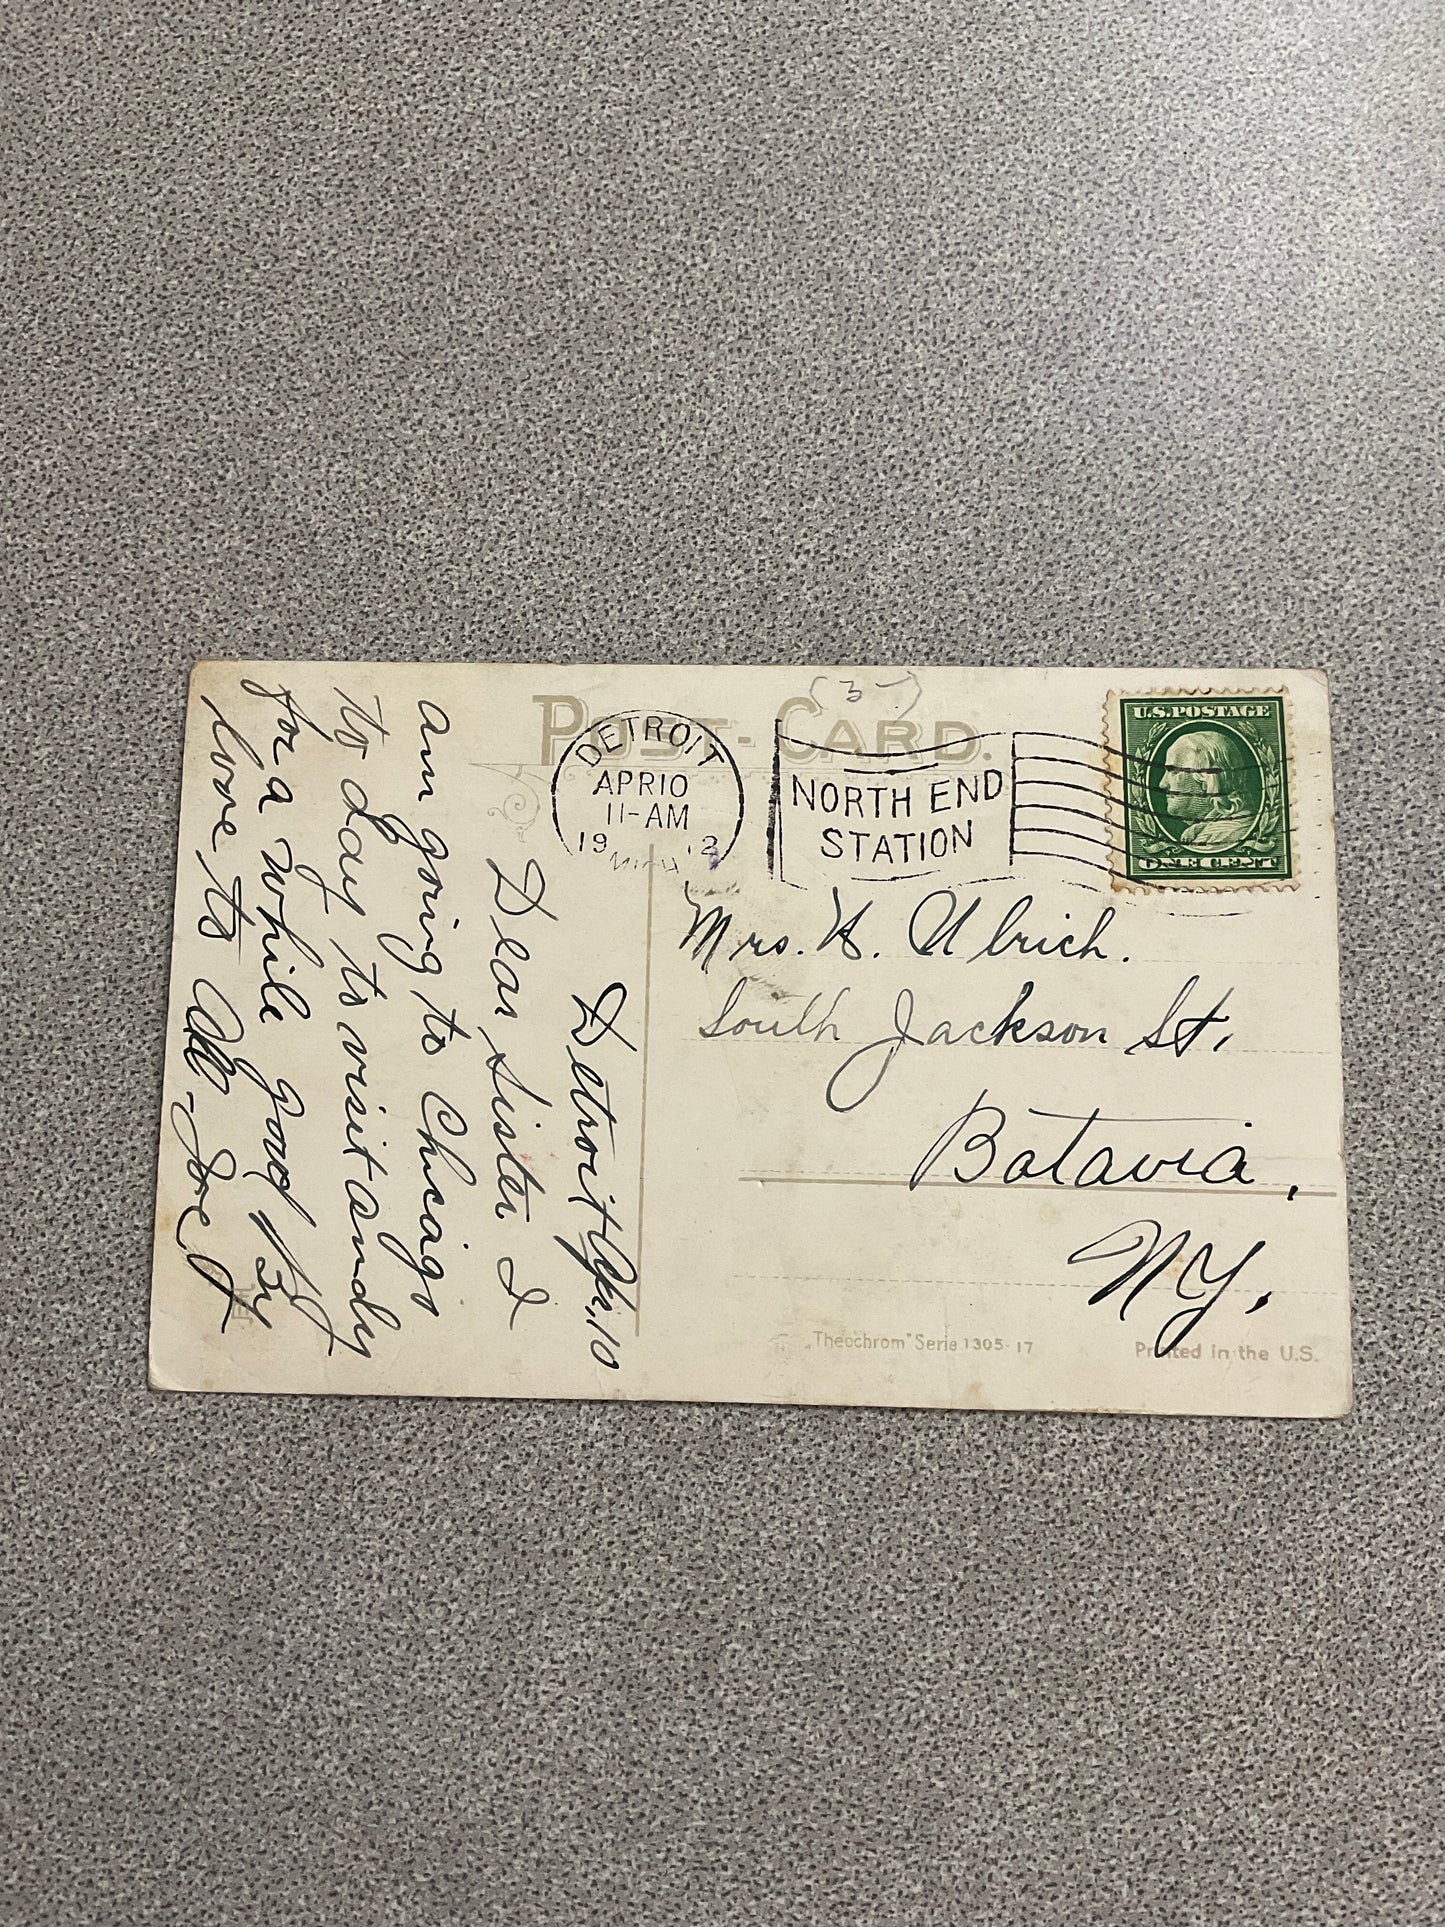 POST-CARD.
(3-)
DETROIT
APR 10
11-AM
1912
MICH
NORTH END
STATION
U.S. POSTAGE
ONE CENT
Detroit Apr. 10
Dear Sister. I
am going to Chicago
to day to visit andy
for a while good By
love to All - Joe
Mrs. H. Ulrich.
South Jackson St.
Batavia,
NY.
„Theochrom" Serie 1305-17
Printed in the U.S.